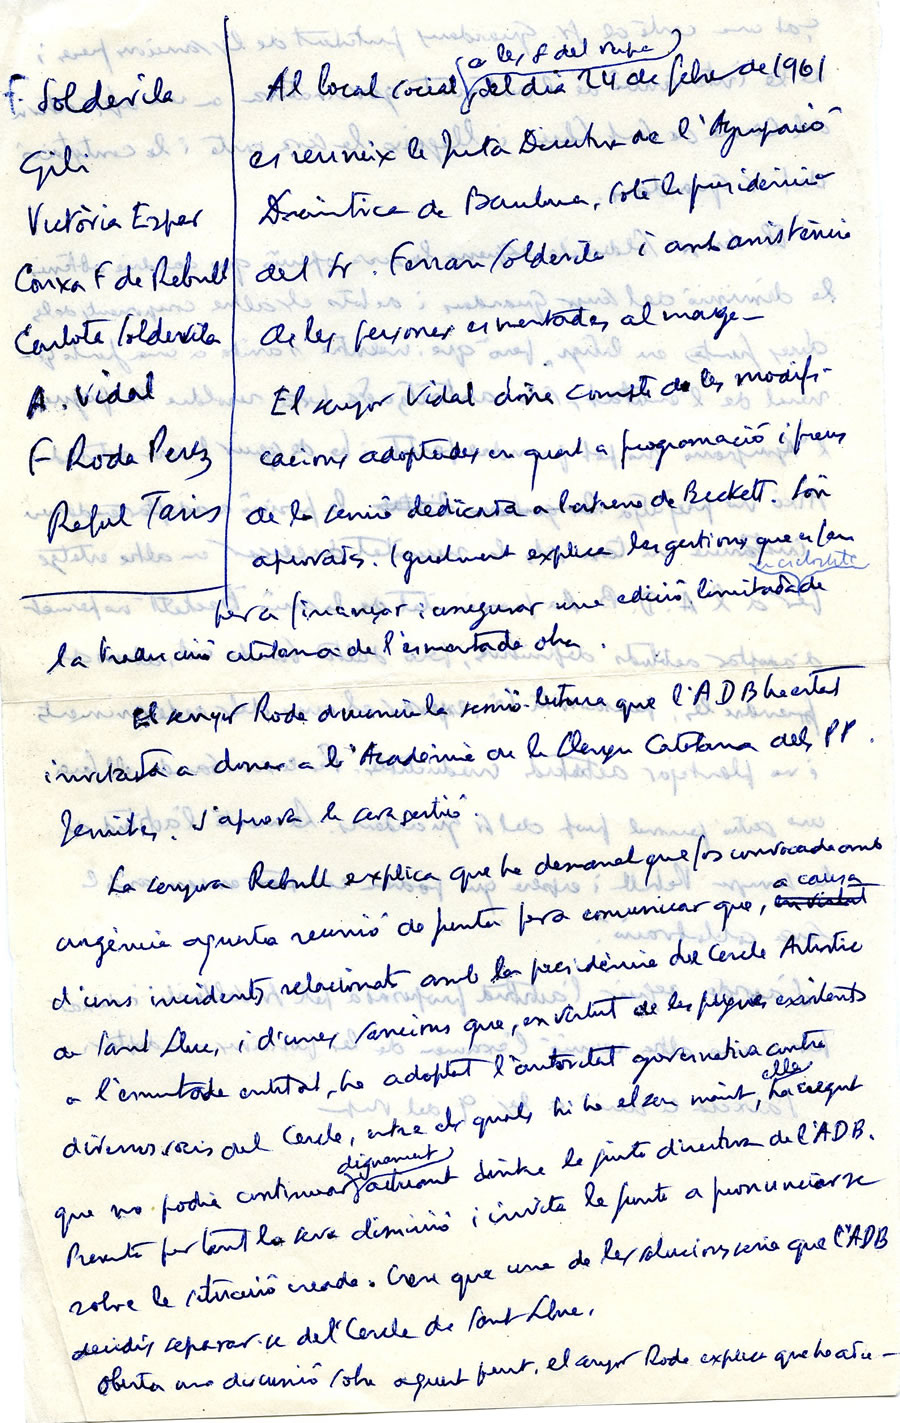 F. Soldevila
Gili
Victòria Espar
Conxa F de Rebull
Carlota Soldevila
A. Vidal
F Roda Perez
Rafael Taris
a les 8 del vespre
Al local social, del dia 24 de febrer de 1961
es reuneix la Junta Directiva de l'Agrupació
Dramàtica de Barcelona, sota la presidència
del Sr. Ferran Soldevila i amb assistència
de les persones esmentades al marge—
El senyor Vidal dóna compte de les modifi-
cacions adoptades en quant a programació i preus
de la sessió dedicada a l'estrena de Beckett. Són
aprovats. Igualment explica les gestions que es fan
a ciclostil
per a finançar i assegurar una edició limitada de
la traducció catalana de l'esmentada obra.
El senyor Roda anuncia la sessió-lectura que l'ADB ha estat
invitada a donar a l'Acadèmia de la Llengua Catalana dels PP.
Jesuites. S'aprova la seva gestió.
La senyora Rebull explica que ha demanat que fos convocada amb
a causa
urgència aquesta reunió de junta per a comunicar que, en virtut
d'uns incidents relacionats amb la presidència del Cercle Artistic
de Sant Lluc, i d'unes sancions que, en virtut de les pugnes existents
a l'esmentada entitat, ha adoptat l'autoritat governativa contra
ella
diversos socis del Cercle, entre els quals hi ha el seu marit, ha cregut
dignament
que no podia continuar actuant dintre la junta directiva de l'ADB.
Presenta per tant la seva dimissió i invita la junta a pronunciar-se
sobre la situació creada. Creu que una de les solucions seria que l'ADB
decidís separar-se del Cercle de Sant Lluc.
Oberta una discussió sobre aquest punt, el senyor Roda explica que ha